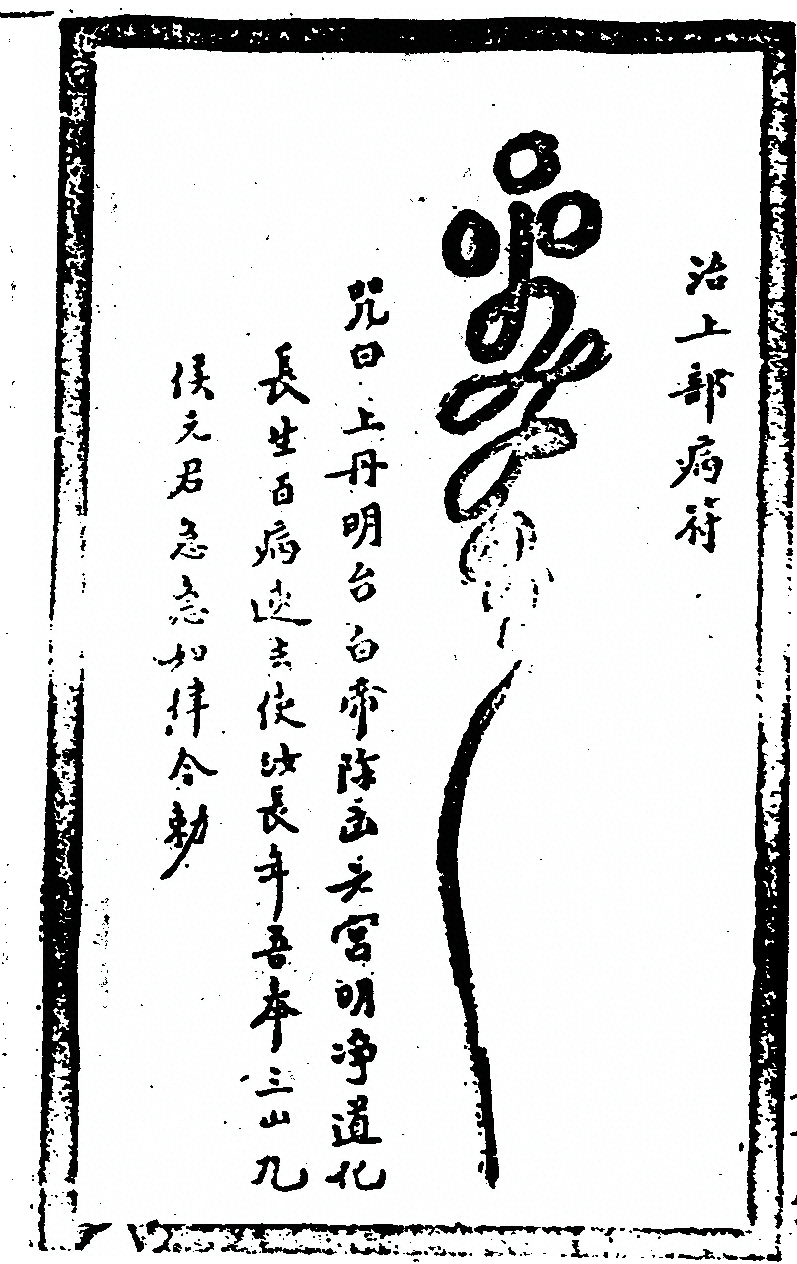 治上部病符
咒曰上丹明台白帝除凶天宮明淨道化
長生百病速去使汝長年吾奉三山九
侯元君急急如律令勅